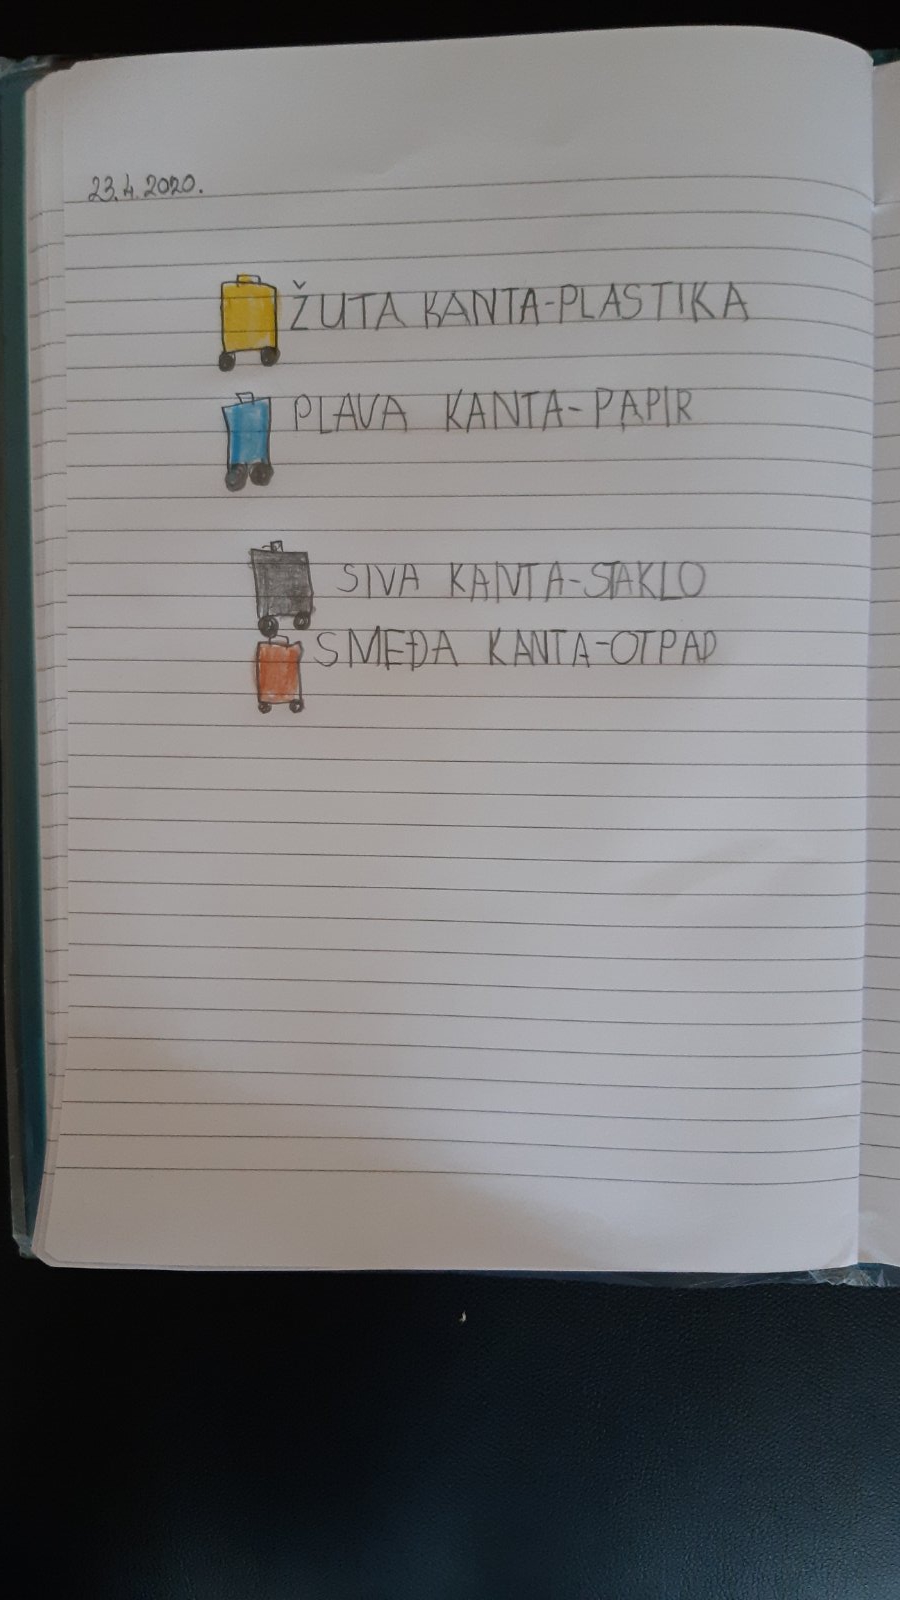 23.4.2020.
ŽUTA KANTA-PLASTIKA
PLAVA KANTA-PAPIR
SIVA KANTA-STAKLO
SMEĐA KANTA-OTPAD